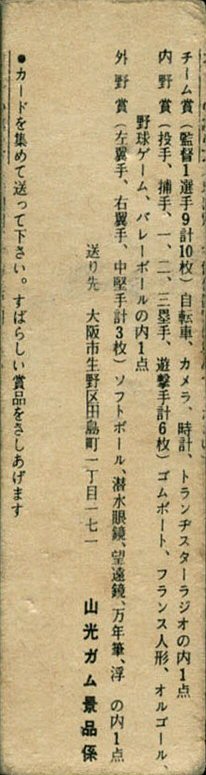 チーム賞(監督1選手9計10枚)自転車、カメラ、時計、トランヂスターラジオの内1点
内野賞(投手、捕手、一、二、三塁手、遊撃手計6枚)ゴムボート、フランス人形、オルゴール、
野球ゲーム、バレーボールの内1点
外野賞(左翼手、右翼手、中堅手計3枚)ソフトボール、潜水眼鏡、望遠鏡、万年筆、浮 の内1点
送り先 大阪市生野区田島町一丁目一七一
山光ガム景品係
●カードを集めて送って下さい。すばらしい賞品をさしあげます